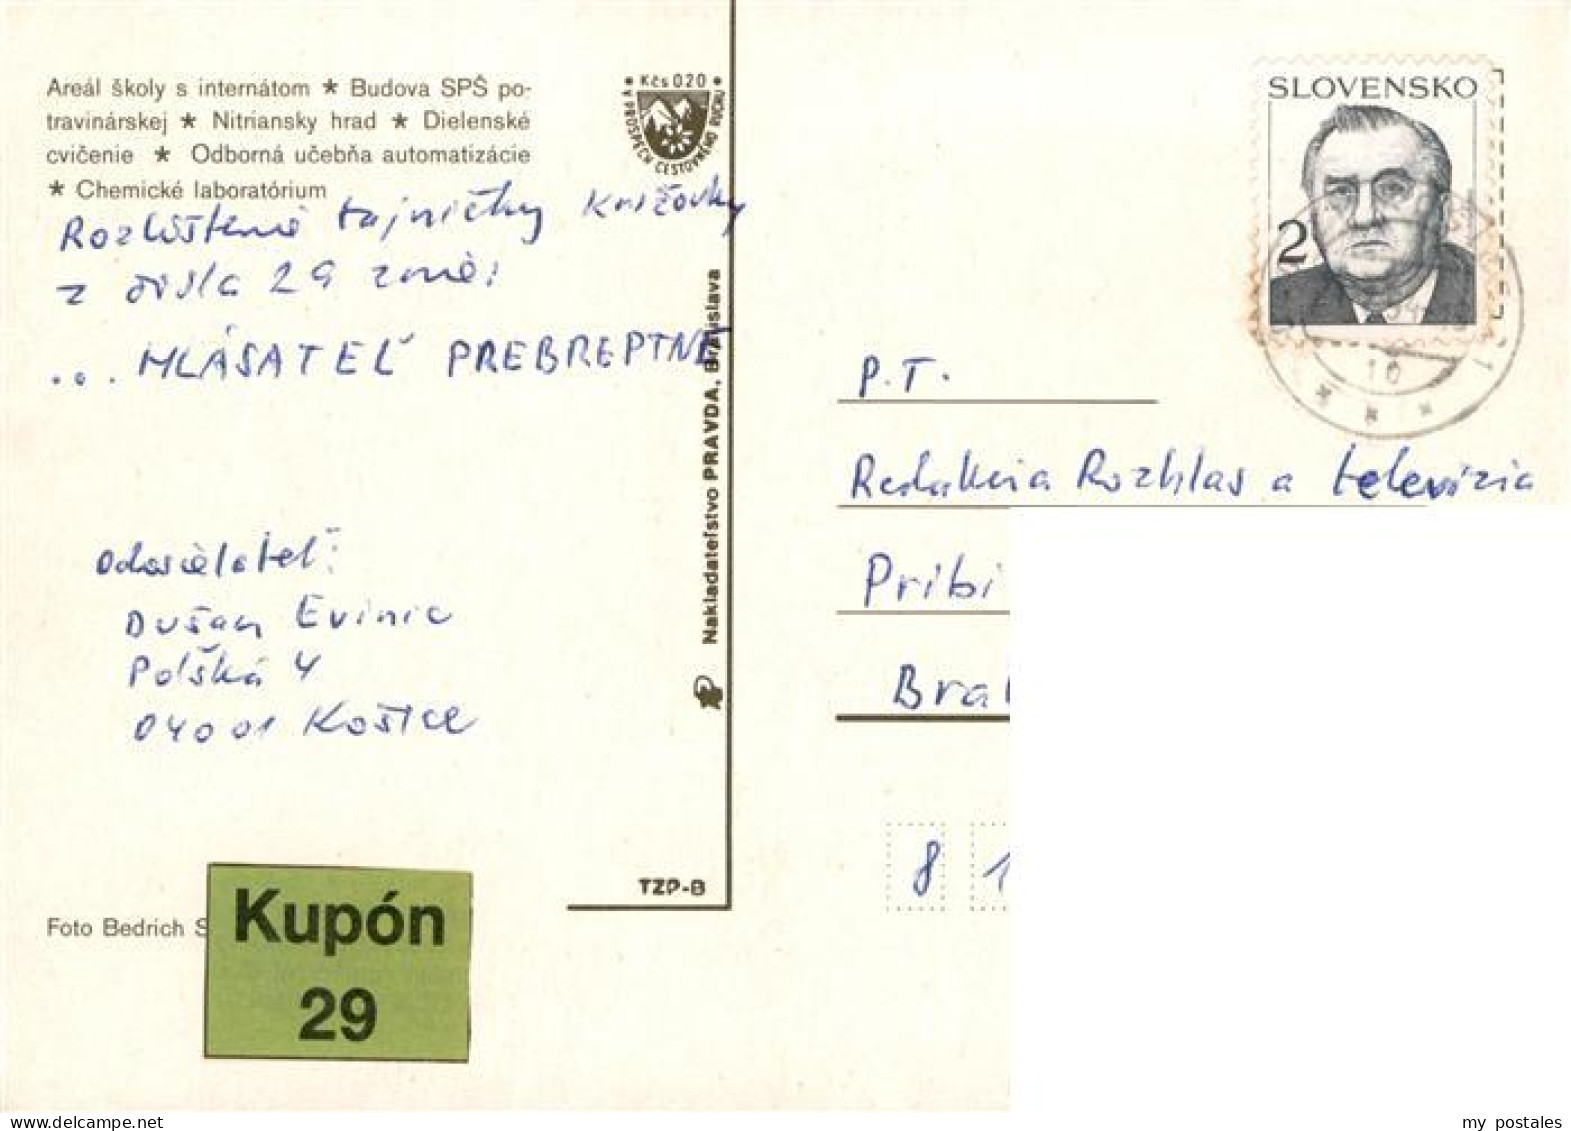 Areál školy s internátom * Budova SPŠ po-
travinárskej * Nitriansky hrad * Dielenské
cvičenie * Odborná učebňa automatizácie
* Chemické laboratórium
Kčs 020
V PROSPECH CESTOVNÉHO RUCHU
tajničky Krížovky
z čísla 29 znie:
... HLÁSATEĽ PREBREPTNE
Odosielateľ:
Dušan Evinic
Poľská 4
04001 Košice
Foto Bedrich S
Kupón
29
Nakladateľstvo PRAVDA, Bratislava
TZP-B
SLOVENSKO
2
10
1
P.T.
Redakcia Rozhlas a televízia
Pribi
Brat
8 1
my postales